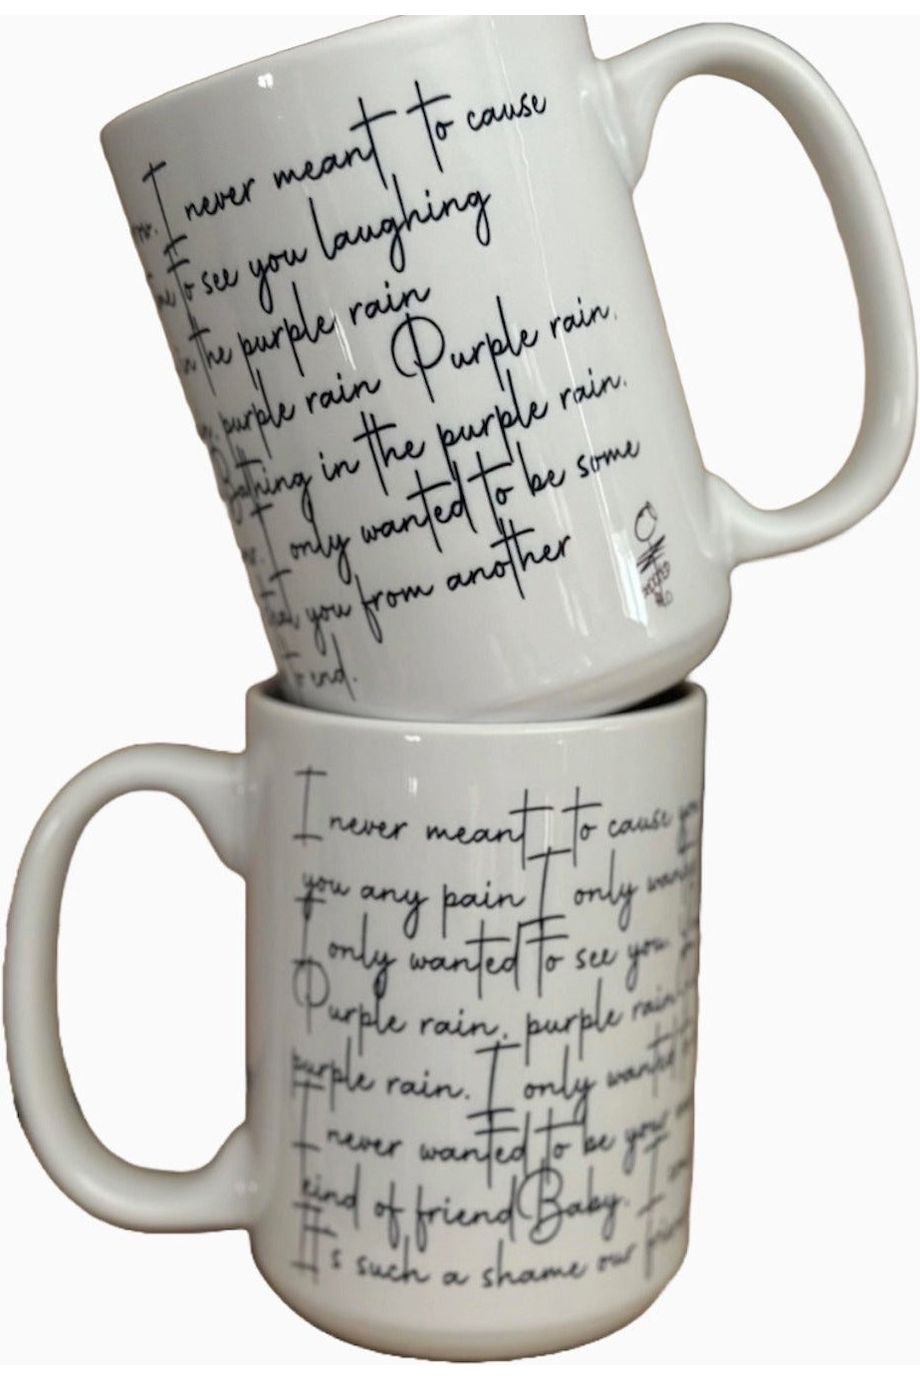 I never meant to cause
to see you laughing
in the purple rain
purple rain Purple rain.
Bathing in the purple rain.
I only wanted to be some
you from another
end.
I never meant to cause
you any pain I only
I only wanted to see you
Purple rain, purple rain
purple rain. I only wanted
I never wanted to be your
kind of friend Baby. I
It's such a shame our